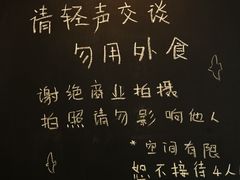 请轻声交谈
勿用外食
谢绝商业拍摄
拍照请勿影响他人
*空间有限
恕不接待4人